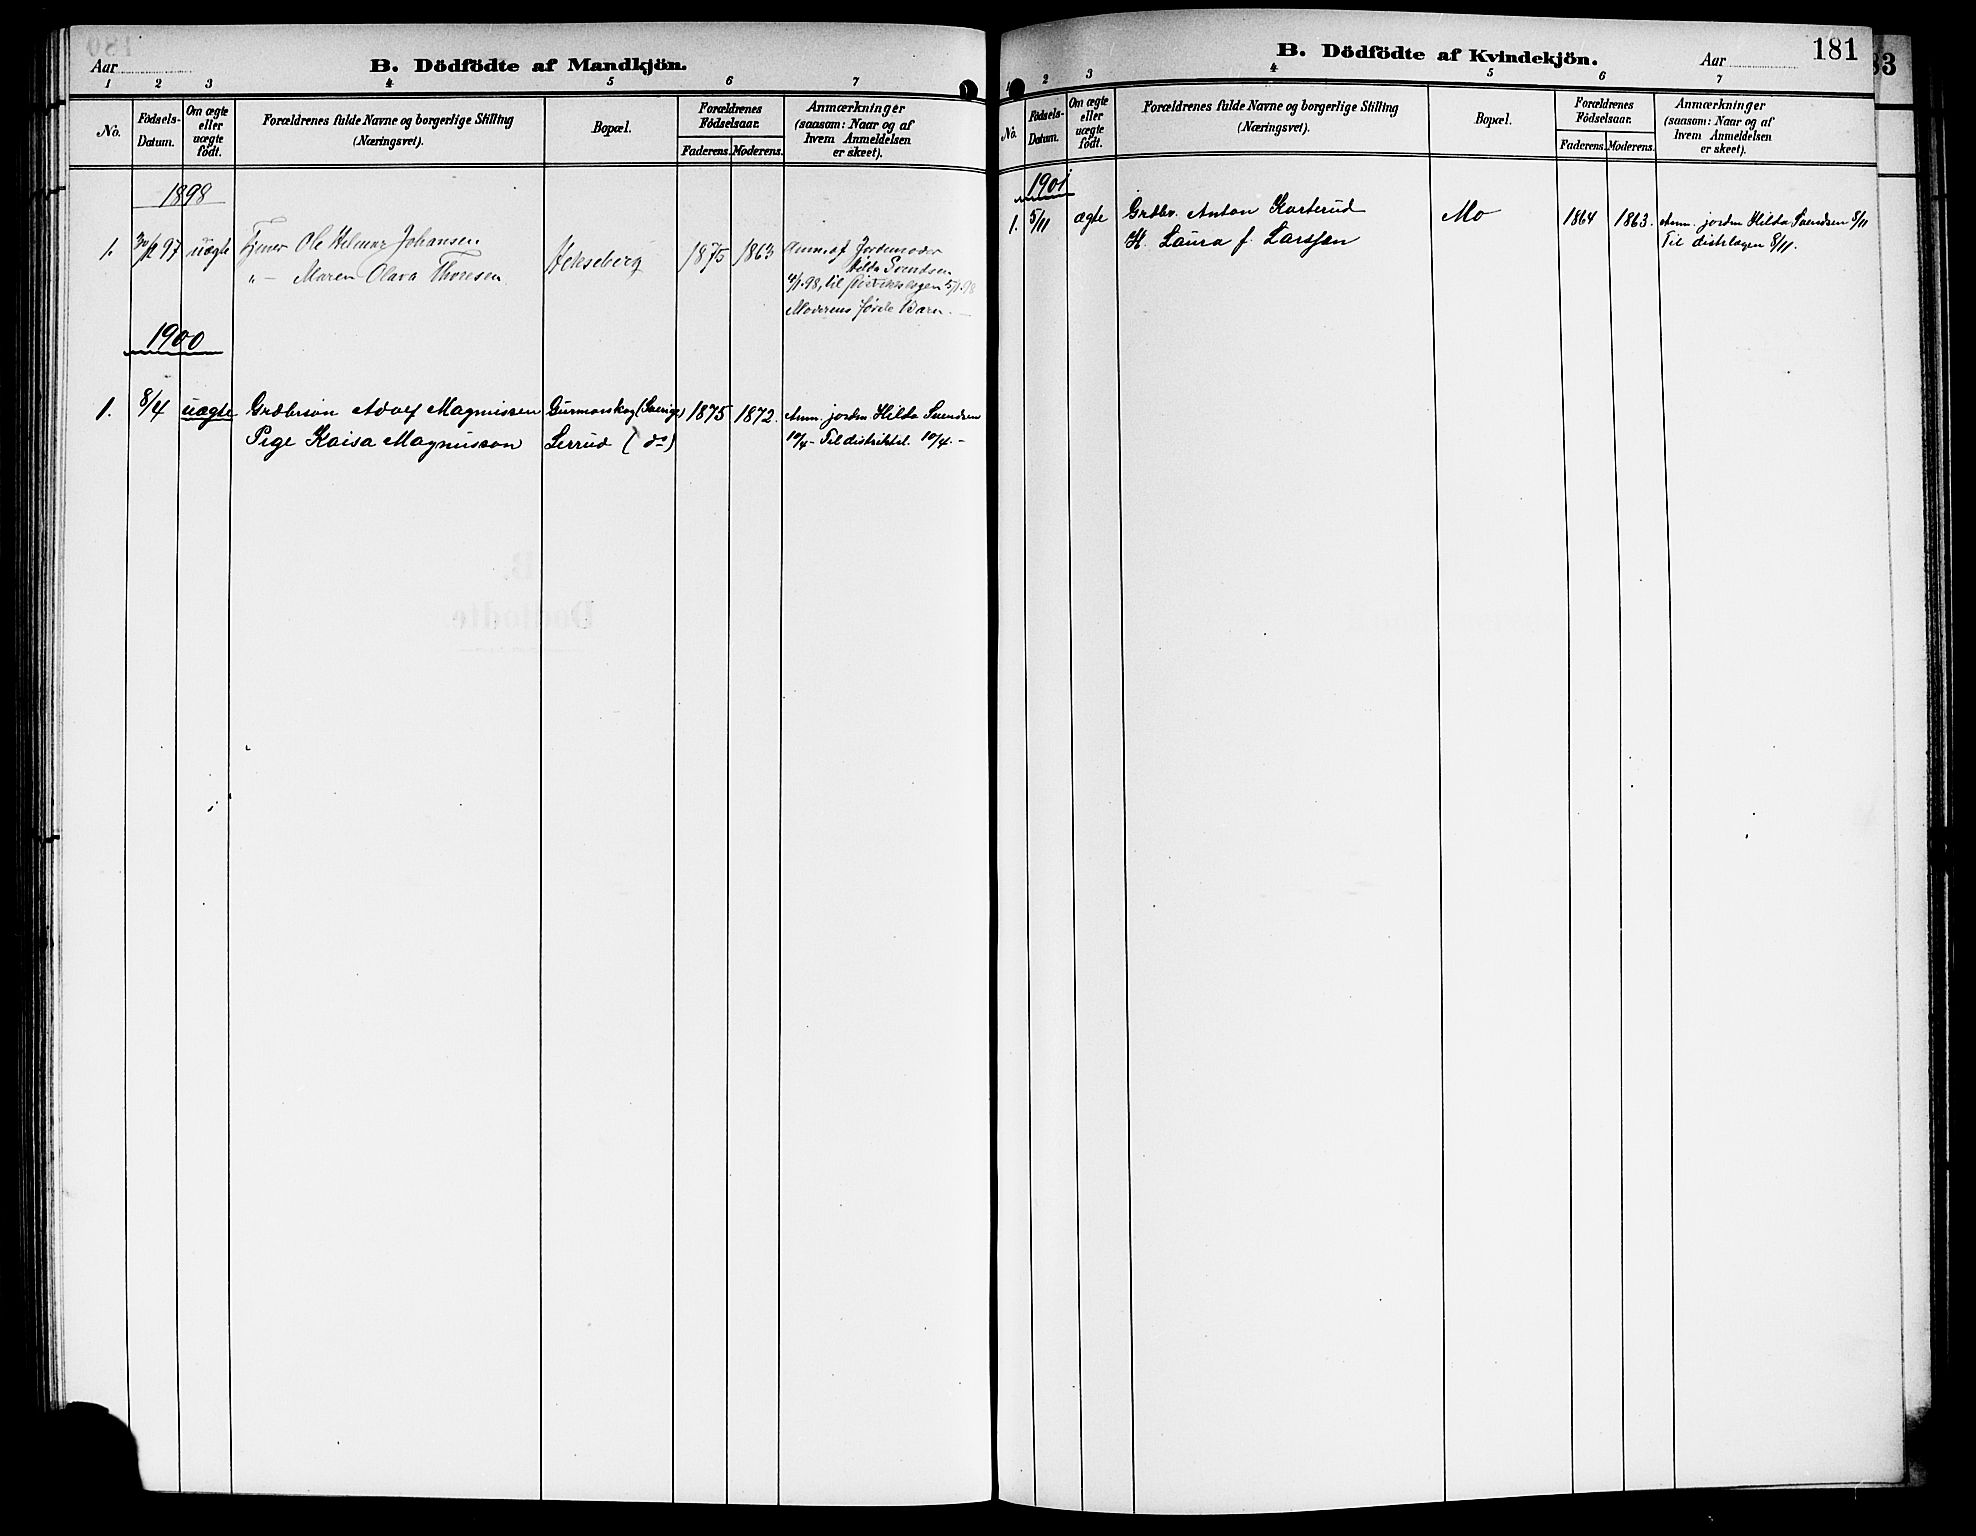 Aar
B. Dödfödte af Mandkjön.
1 2 3 4 5 6 7
No.
Födsels-
Datum.
Om ægte
eller
uægte
födt.
Forældrenes fulde Navne og borgerlige Stilling
(Næringsvei).
Bopæl.
Forældrenes
Födselsaar.
Faderens. Moderens.
Anmærkninger
(saasom: Naar og af
hvem Anmeldelsen
er skeet).
1898
1. 30/12 97 uægte Tjener Ole Helmar Johansen
" — Maren Olava Thoresen
Hekseberg 1875 1863
Anm. af Jordemoder
Hilda Svendsen
4/1 98, til 5/1 98
Moderens første Barn. —
1900
1. 8/4 uægte Grdbrsøn Adolf Magnussen Gurmanskog (Sverige) 1875 1872. Anm. jordm Hilda Svendsen
Pige Kaisa Magnusson Lerrud (do) 10/4 — Til distriktsl. 10/4. —
B. Dödfödte af Kvindekjön.
Aar
181
1 2 3 4 5 6 7
No.
Födsels-
Datum.
Om ægte
eller
uægte
födt.
Forældrenes fulde Navne og borgerlige Stilling
(Næringsvei).
Bopæl.
Forældrenes
Födselsaar.
Faderens. Moderens.
Anmærkninger
(saasom: Naar og af
hvem Anmeldelsen
er skeet).
1901
1. 5/11 ægte Grdbr. Anton Karterud Mo 1864 1863. Anm. jordm Hilda Svendsen 8/11
H. Laura f. Larssen Til distrlægen 8/11.